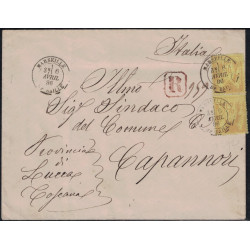 MARSEILLE
AVRIL
Italia
R
Illmo
Sig. Sindaco
del Comune
Capannori
Provincia
di
Lucca
Toscana